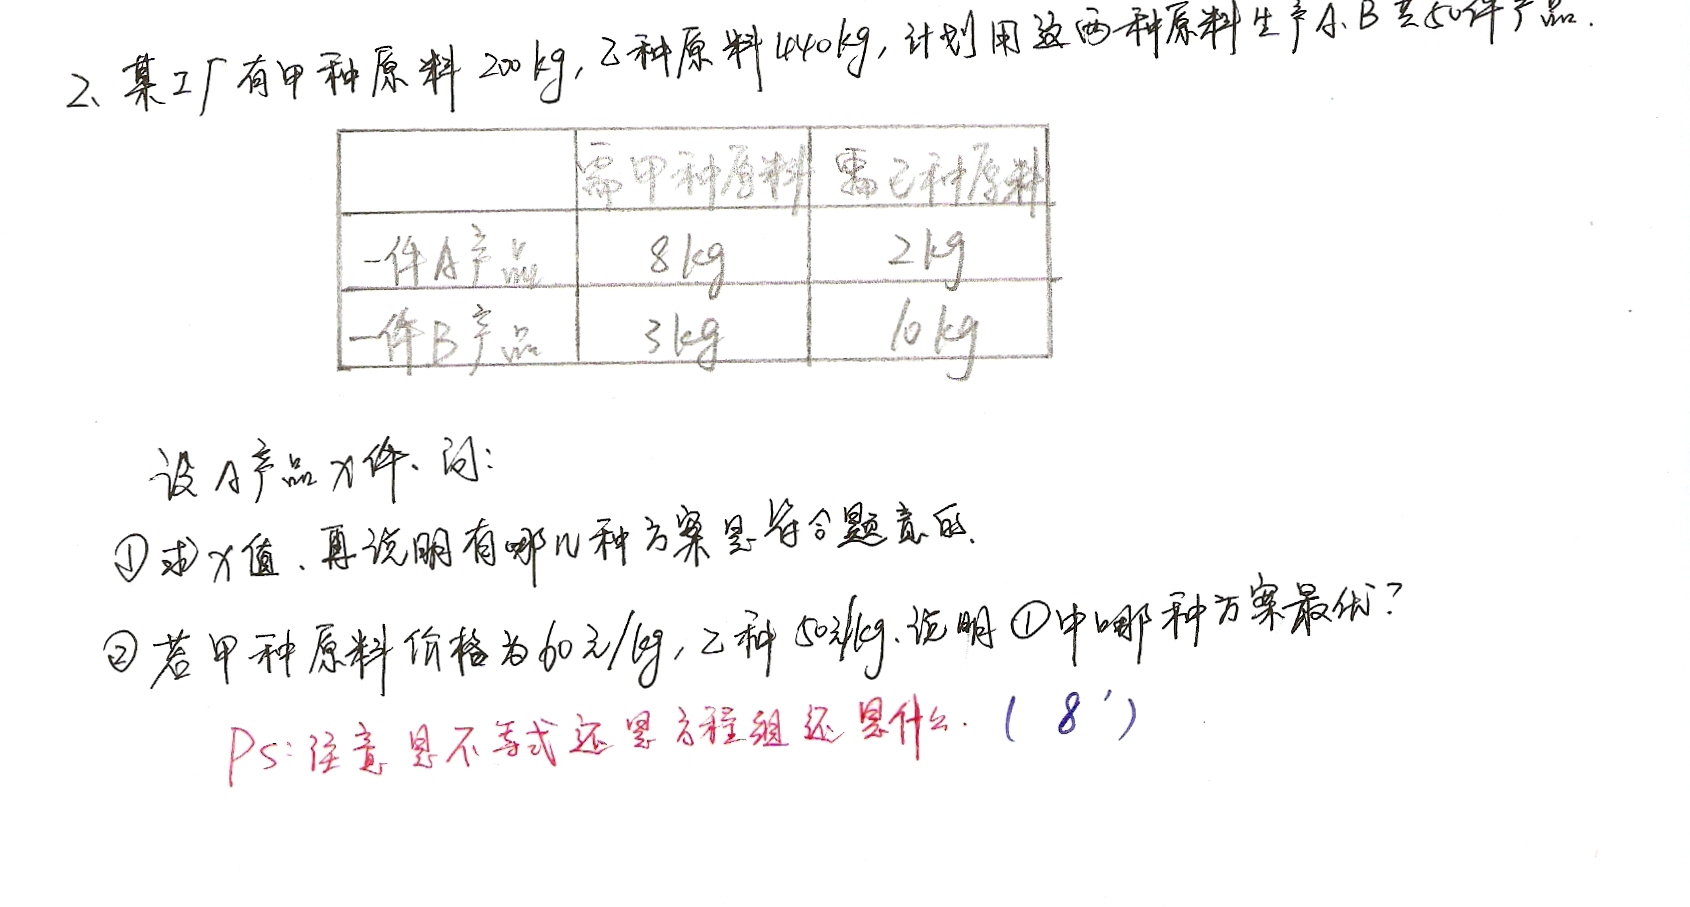 2、某工厂有甲种原料200kg,乙种原料440kg,计划用这两种原料生产A、B共50件产品.
需甲种原料 需乙种原料
一件A产品 8kg 2kg
一件B产品 3kg 10kg
设A产品x件、问:
①求x值、再说明有哪几种方案是符合题意的.
②若甲种原料价格为60元/kg,乙种50元/kg.说明①中哪种方案最优?
PS:注意是不等式还是方程组还是什么.(8')